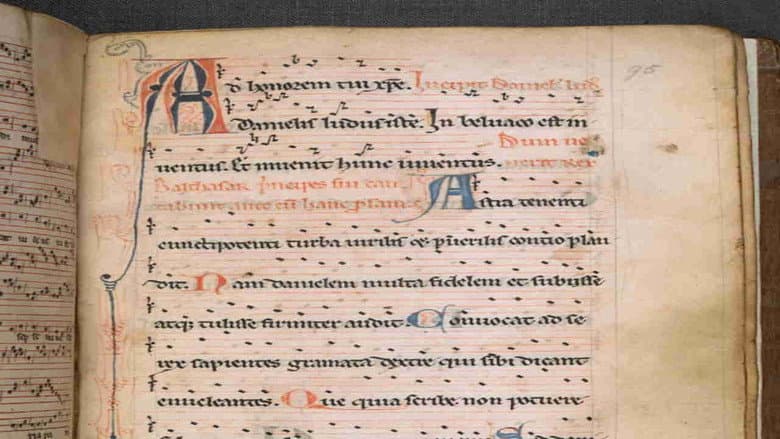 95
Ad honorem tui xp̄e. Incipit Danielis lud'
Danielis ludus iste. In beluaco est in
Dum ue
uentus. Et inuenit hunc iuuentus. nerit rex
Balthasar principes sui can
tabunt ante eum hanc Astra tenenti
cunctipotenti turba uirilis et puerilis contio plau
dit. Nam danielem multa fidelem et subisse
atq; tulisse firmiter audit. Conuocat ad se
rex sapientes gramata dextre qui sibi dicant
enucleantes. Que quia scribe non potuere